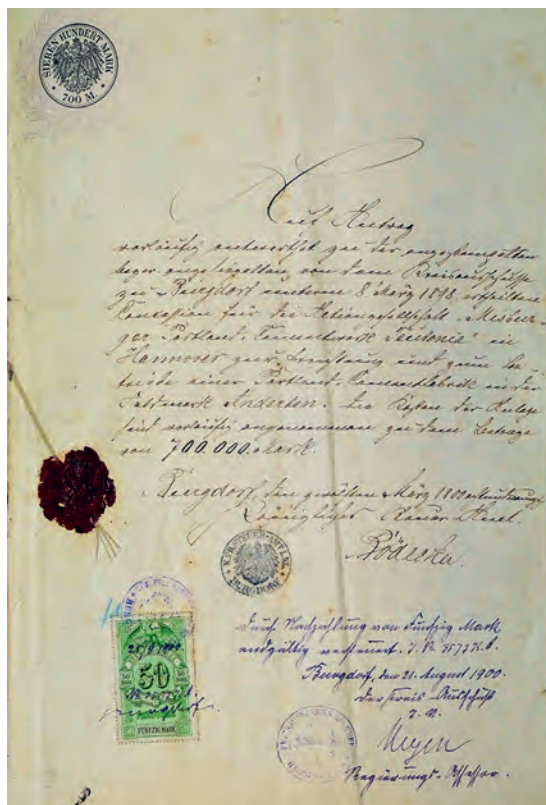 SIEBEN HUNDERT MARK
700 M.
Auf Antrag
vorläufig entwerthet zu der angestempelten
bezw. angesiegelten, von dem Kreisausschusse
zu Burgdorf unterm 8 März 1898 ertheilten
Concession für die Actiengesellschaft "Misbur-
ger Portland-Cementwerk Teutonia" in
Hannover zur Errichtung und zum Be-
triebe einer Portland-Cementfabrik in der
Feldmark Anderten. Die Kosten der Anlage
sind vorläufig angenommen zu dem Betrage
von 700.000. Mark.
Burgdorf, den zwölften März 1800 achtundneunzig
Königliches Steuer-Amt.
Bödecker
BURGDORF
50
FÜNFZIG MARK
Durch Nachzahlung von Fünfzig Mark
endgültig versteuert. J. №
Burgdorf, den 21. August 1900.
Der Kreis-Ausschuß
Meyer
Regierungs-Assessor.